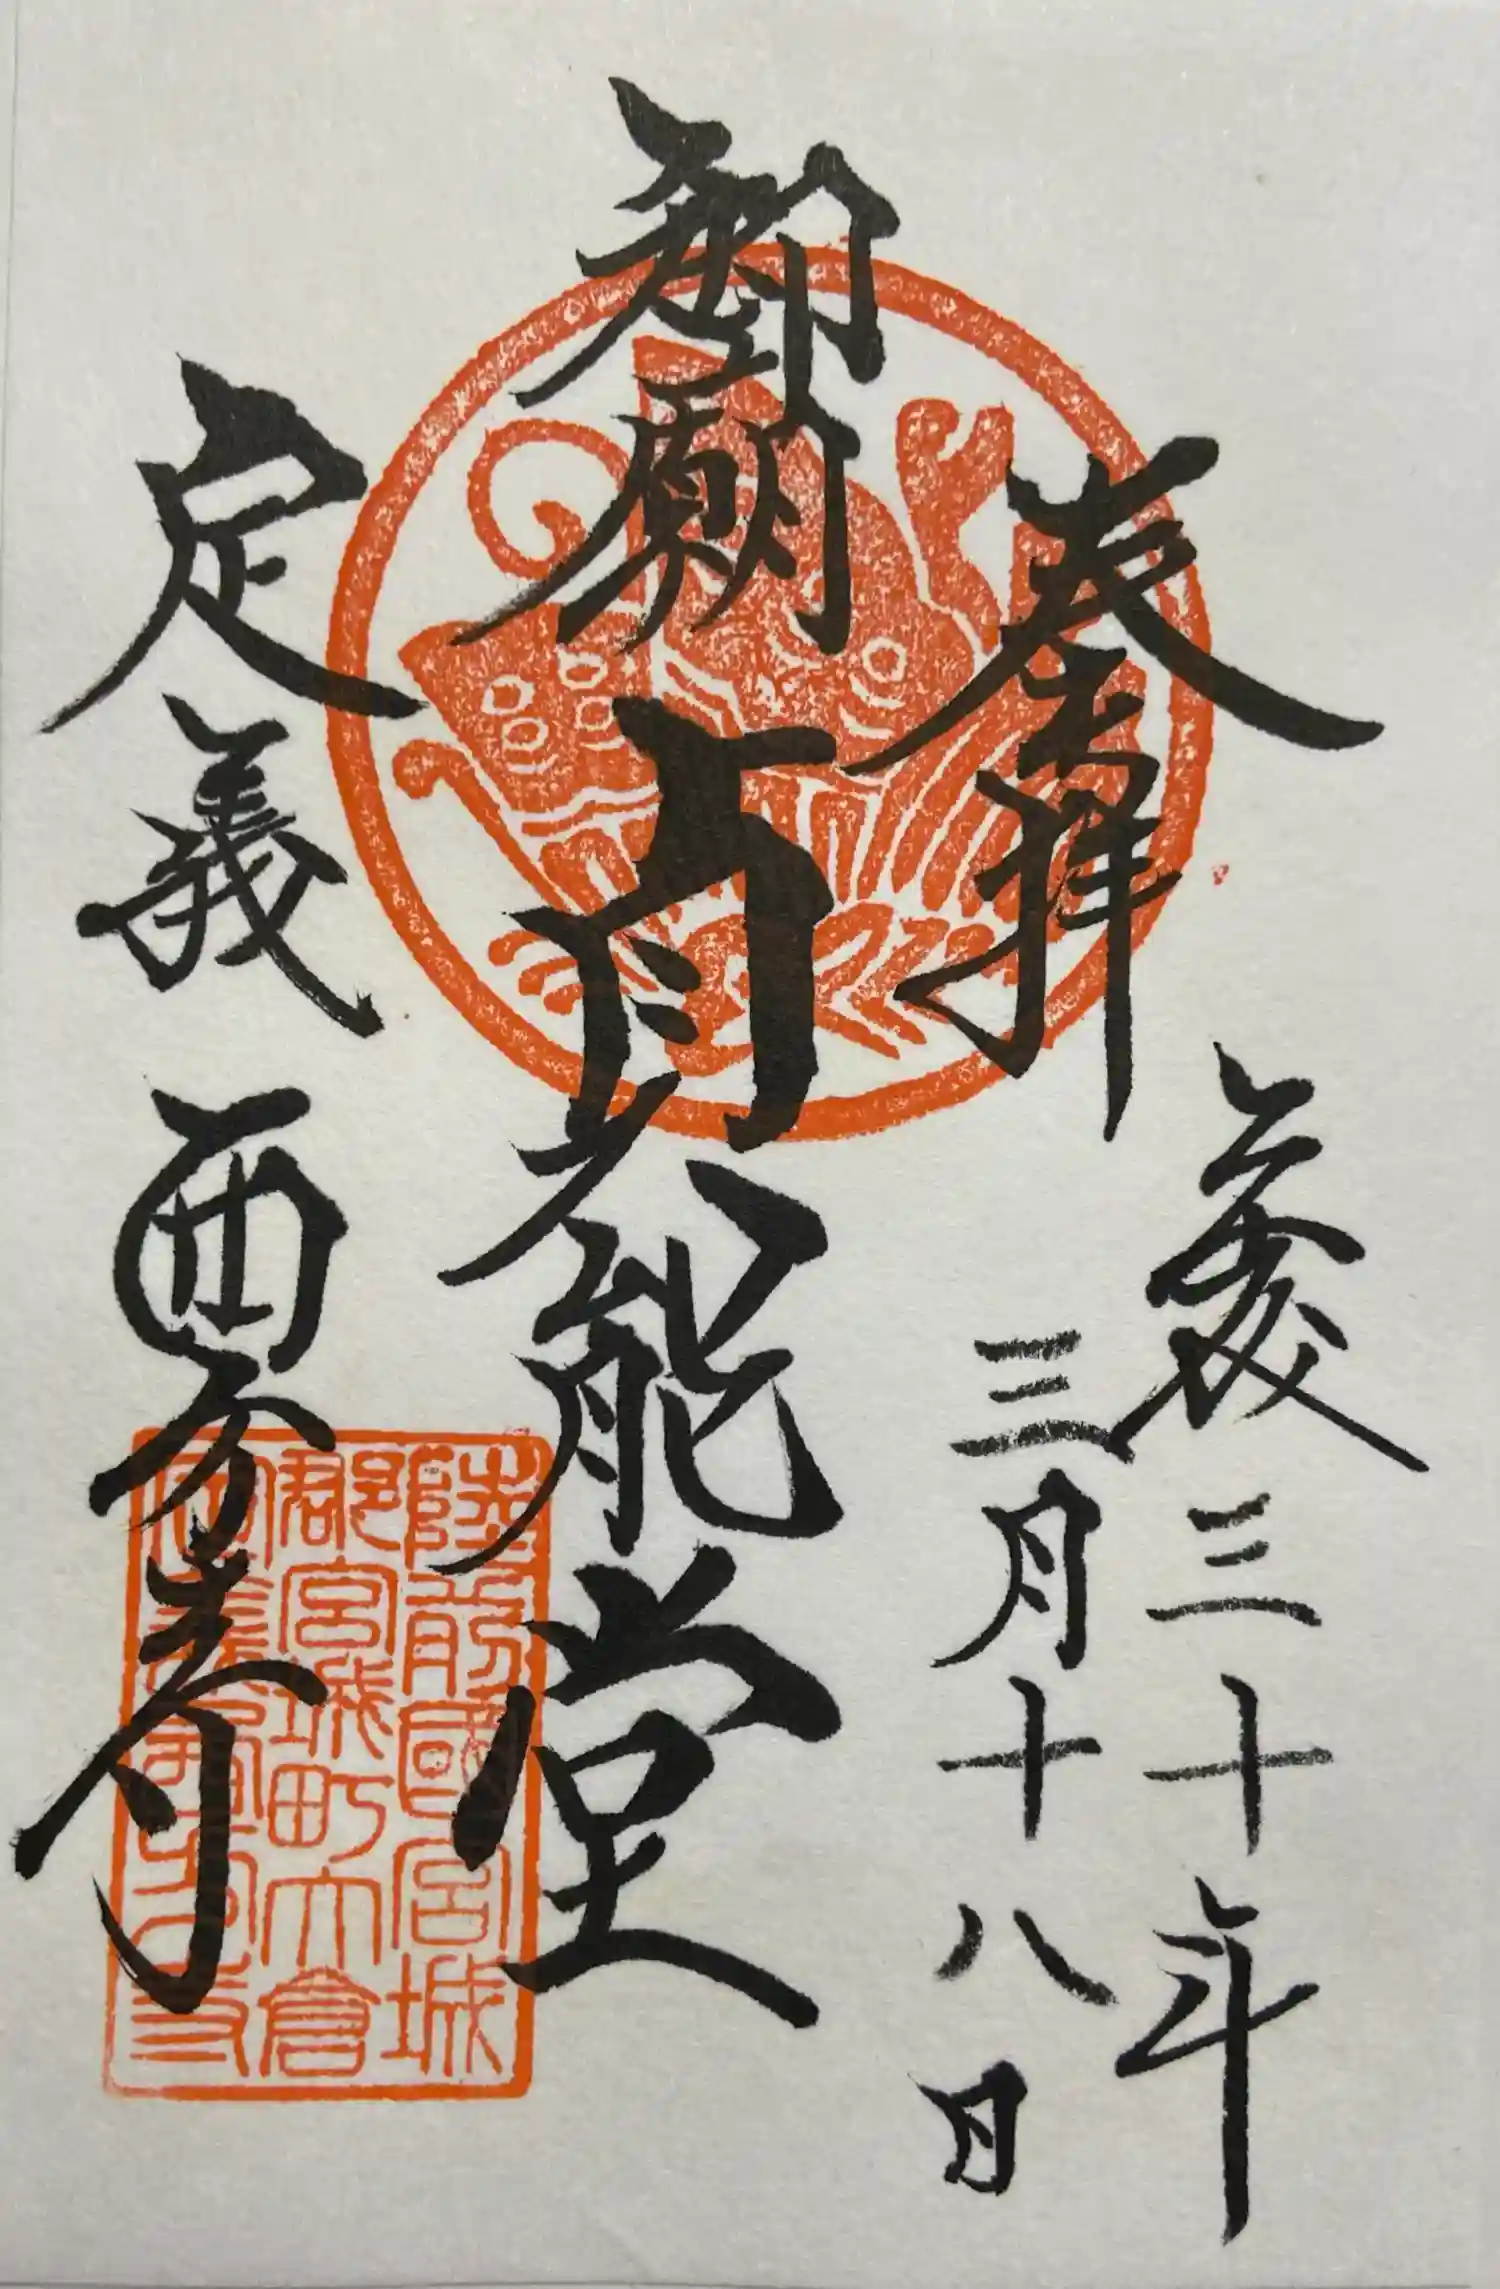 奉拝
平成三十年
三月十八日
御廟
貞能堂
定義 西方寺
陸前國宮城
郡宮城町大倉